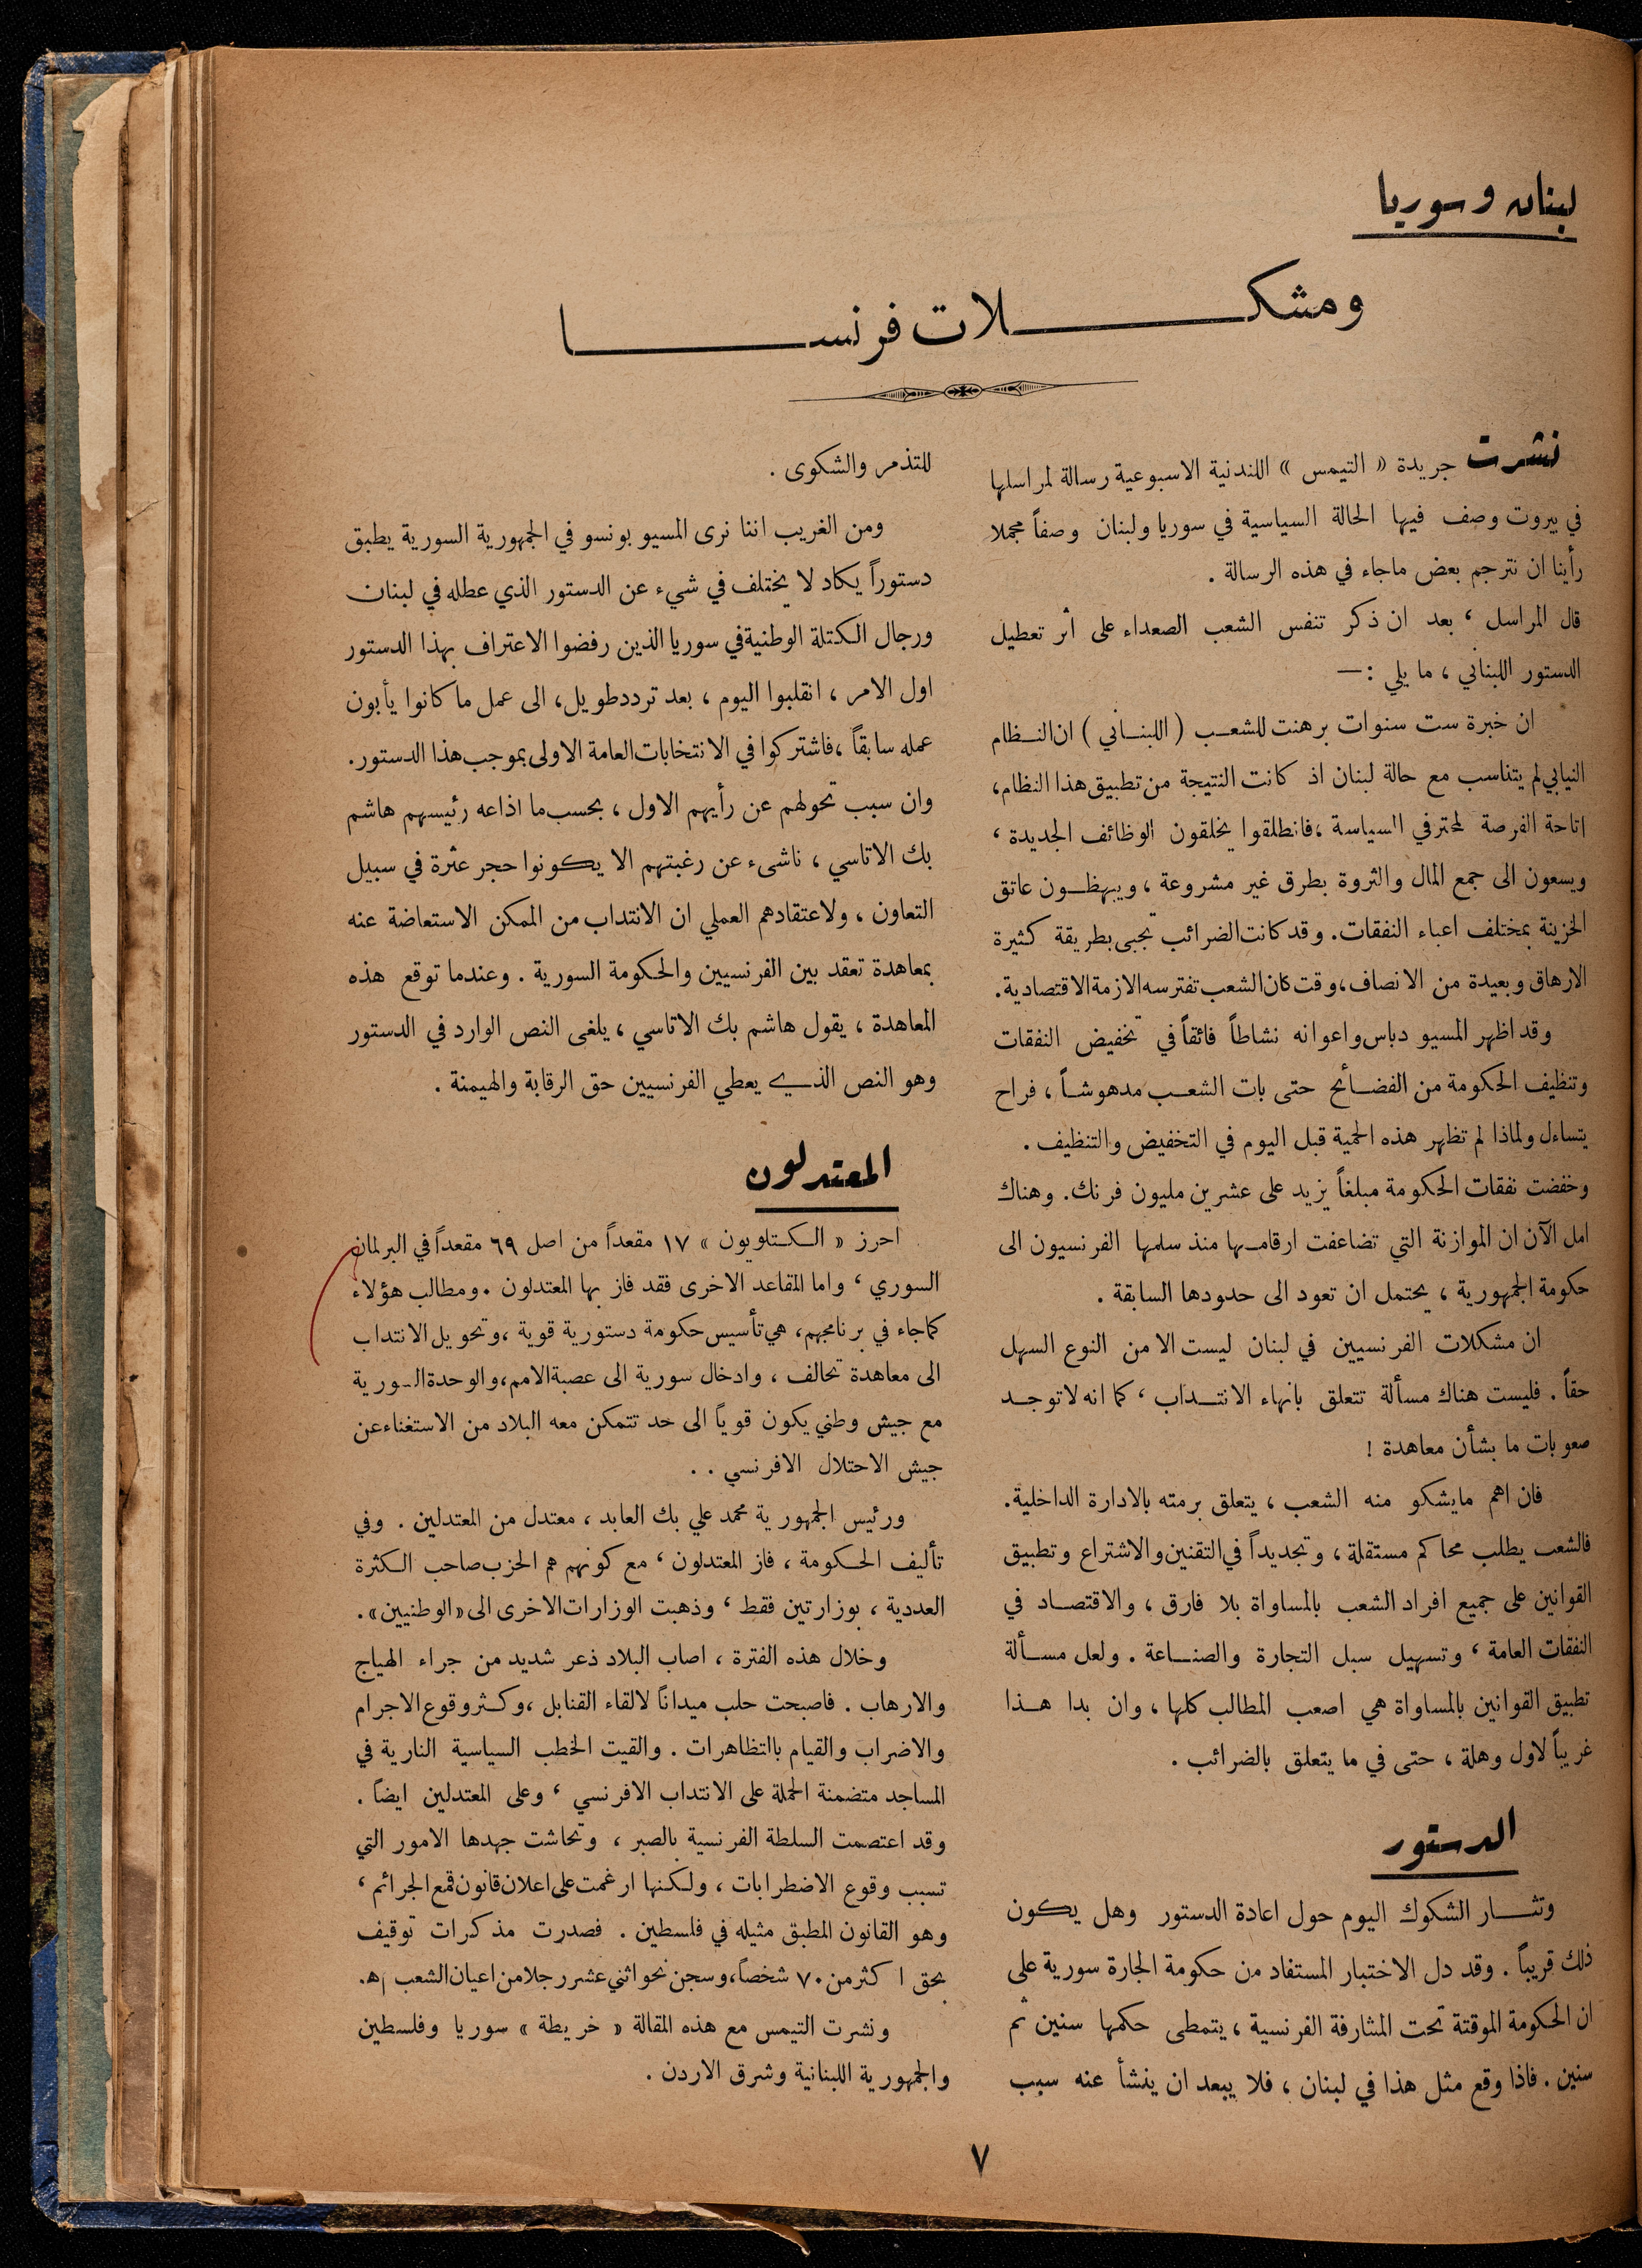 لبنان وسوريا
ومشكلات فرنسا
نشرت جريدة « التيمس » اللندنية الاسبوعية رسالة لمراسلها
في بيروت وصف فيها الحالة السياسية في سوريا ولبنان وصفاً مجملا
رأينا ان نترجم بعض ماجاء في هذه الرسالة .
قال المراسل ، بعد ان ذكر تنفس الشعب الصعداء على أثر تعطيل
الدستور اللبناني ، ما يلي : —
ان خبرة ست سنوات برهنت للشعب ( اللبناني ) ان النظام
النيابي لم يتناسب مع حالة لبنان اذ كانت النتيجة من تطبيق هذا النظام ،
اتاحة الفرصة لمحترفي السياسة ، فانطلقوا يخلقون الوظائف الجديدة ،
ويسعون الى جمع المال والثروة بطرق غير مشروعة ، ويبهظون عاتق
الخزينة بمختلف اعباء النفقات . وقد كانت الضرائب تجبى بطريقة كثيرة
الارهاق وبعيدة من الانصاف ، وقت كان الشعب تفترسه الازمة الاقتصادية .
وقد اظهر المسيو دباس واعوانه نشاطاً فائقاً في تخفيض النفقات
وتنظيف الحكومة من الفضائح حتى بات الشعب مدهوشاً ، فراح
يتساءل ولماذا لم تظهر هذه الحمية قبل اليوم في التخفيض والتنظيف .
وخفضت نفقات الحكومة مبلغاً يزيد على عشرين مليون فرنك . وهناك
امل الآن ان الموازنة التي تضاعفت ارقامها منذ سلمها الفرنسيون الى
حكومة الجمهورية ، يحتمل ان تعود الى حدودها السابقة .
ان مشكلات الفرنسيين في لبنان ليست الا من النوع السهل
حقاً . فليست هناك مسألة تتعلق بانهاء الانتداب ، كما انه لا توجد
صعوبات ما بشأن معاهدة !
فان اهم مايشكو منه الشعب ، يتعلق برمته بالادارة الداخلية .
فالشعب يطلب محاكم مستقلة ، وتجديداً في التقنين والاشتراع وتطبيق
القوانين على جميع افراد الشعب بالمساواة بلا فارق ، والاقتصاد في
النفقات العامة ، وتسهيل سبل التجارة والصناعة . ولعل مسألة
تطبيق القوانين بالمساواة هي اصعب المطالب كلها ، وان بدا هذا
غريباً لاول وهلة ، حتى في ما يتعلق بالضرائب .
الدستور
وتثار الشكوك اليوم حول اعادة الدستور وهل يكون
ذلك قريباً . وقد دل الاختبار المستفاد من حكومة الجارة سورية على
ان الحكومة الموقتة تحت المشارفة الفرنسية ، يتمطى حكمها سنين ثم
سنين . فاذا وقع مثل هذا في لبنان ، فلا يبعد ان ينشأ عنه سبب
للتذمر والشكوى .
ومن الغريب اننا نرى المسيو بونسو في الجمهورية السورية يطبق
دستوراً يكاد لا يختلف في شيء عن الدستور الذي عطله في لبنان
ورجال الكتلة الوطنية في سوريا الذين رفضوا الاعتراف بهذا الدستور
اول الامر ، انقلبوا اليوم ، بعد تردد طويل ، الى عمل ما كانوا يأبون
عمله سابقاً ، فاشتركوا في الانتخابات العامة الاولى بموجب هذا الدستور .
وان سبب تحولهم عن رأيهم الاول ، بحسب ما اذاعه رئيسهم هاشم
بك الاتاسي ، ناشىء عن رغبتهم الا يكونوا حجر عثرة في سبيل
التعاون ، ولاعتقادهم العملي ان الانتداب من الممكن الاستعاضة عنه
بمعاهدة تعقد بين الفرنسيين والحكومة السورية . وعندما توقع هذه
المعاهدة ، يقول هاشم بك الاتاسي ، يلغى النص الوارد في الدستور
وهو النص الذي يعطي الفرنسيين حق الرقابة والهيمنة .
المعتدلون
احرز « الكتلويون » ١٧ مقعداً من اصل ٦٩ مقعداً في البرلمان
السوري ، واما المقاعد الاخرى فقد فاز بها المعتدلون . ومطالب هؤلاء
كما جاء في برنامجهم ، هي تأسيس حكومة دستورية قوية ، وتحويل الانتداب
الى معاهدة تحالف ، وادخال سورية الى عصبة الامم ، والوحدة السورية
مع جيش وطني يكون قوياً الى حد تتمكن معه البلاد من الاستغناء عن
جيش الاحتلال الافرنسي . .
ورئيس الجمهورية محمد علي بك العابد ، معتدل من المعتدلين . وفي
تأليف الحكومة ، فاز المعتدلون ، مع كونهم هم الحزب صاحب الكثرة
العددية ، بوزارتين فقط ، وذهبت الوزارات الاخرى الى « الوطنيين » .
وخلال هذه الفترة ، اصاب البلاد ذعر شديد من جراء الهياج
والارهاب . فاصبحت حلب ميداناً لالقاء القنابل ، وكثر وقوع الاجرام
والاضراب والقيام باالتظاهرات . والقيت الخطب السياسية النارية في
المساجد متضمنة الحملة على الانتداب الافرنسي ، وعلى المعتدلين ايضاً .
وقد اعتصمت السلطة الفرنسية بالصبر ، وتحاشت جهدها الامور التي
تسبب وقوع الاضطرابات ، ولكنها ارغمت على اعلان قانون قمع الجرائم ،
وهو القانون المطبق مثيله في فلسطين . فصدرت مذكرات توقيف
بحق اكثر من ٧٠ شخصاً ، وسجن نحو اثني عشر رجلا من اعيان الشعب اه.
ونشرت التيمس مع هذه المقالة « خريطة » سوريا وفلسطين
والجمهورية اللبنانية وشرق الاردن .
٧